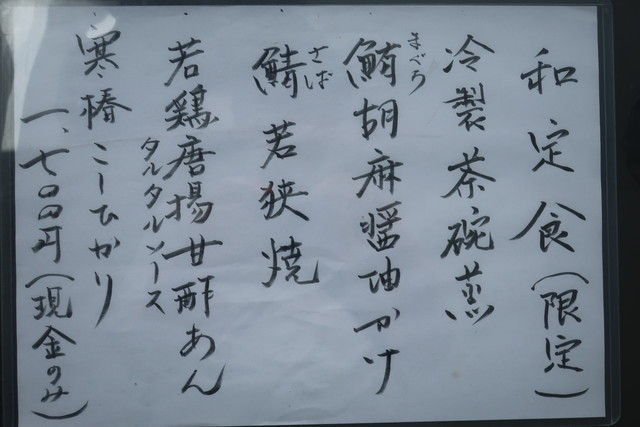 和定食(限定)
冷製茶碗蒸
まぐろ
鮪胡麻醤油かけ
さば
鯖若狭焼
若鶏唐揚甘酢あん
タルタルソース
寒椿こしひかり
一、七〇〇円(現金のみ)